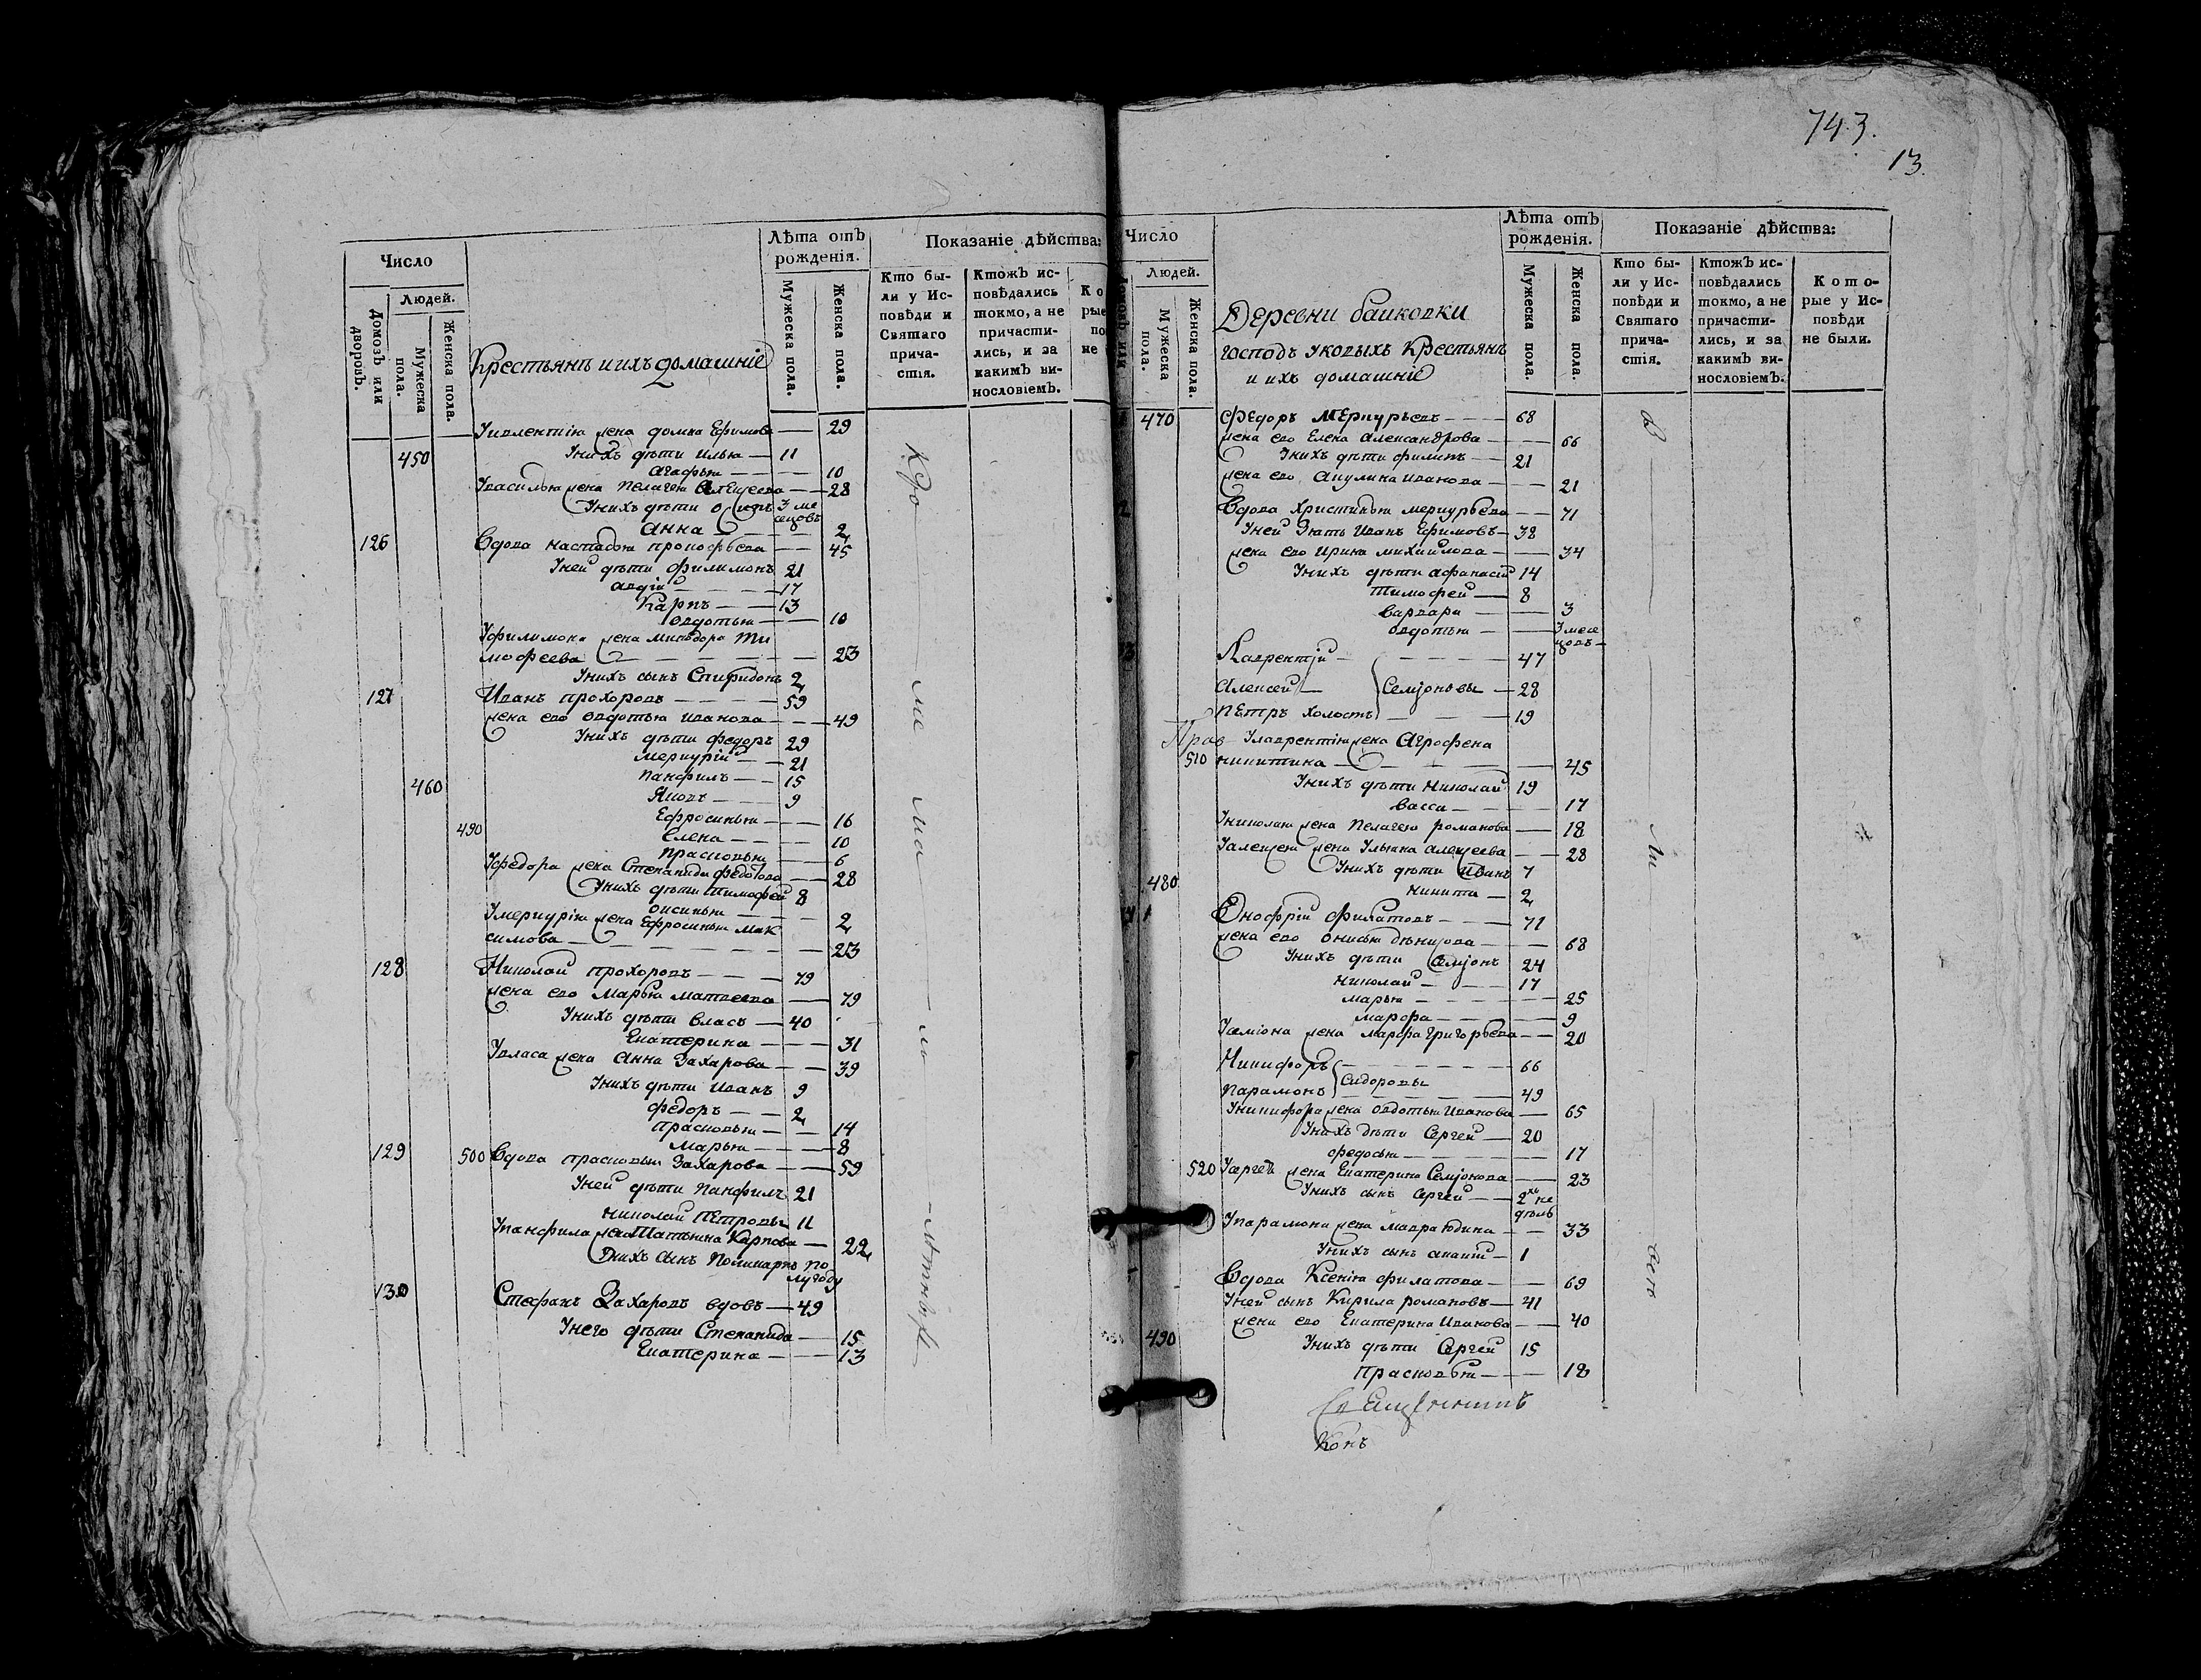 743.
13.
Число
Людей.
Домовъ или дворовъ.
Мужеска пола.
Женска пола.
Крестьянъ и ихъ домашніе
Лѣта отъ рожденія.
Мужеска пола.
Женска пола.
Показаніе дѣйства:
Кто бы-
ли у Ис-
повѣди и
Святаго
прича-
стія.
Ктожъ ис-
повѣдались
токмо, а не
причасти-
лись, и за
какимъ ви-
нословіемъ.
Ко
рые
по
не
жена домна Ефимова 29
450 Унихъ дѣти илья 11
агафья 10
Увасилья жена Пелагея Алексеева 28
Унихъ дѣти 3 ме
сецовъ
Анна 2
126 Вдова настасья прокофьева 45
Уней дѣти филимонъ 21
авдій 17
Карпъ 13
овдотья 10
Уфилимона жена Ти
мофеева 23
Унихъ сынъ Спиридонъ 2
127 Иванъ прохоровъ 59
жена ево овдотья иванова 49
Унихъ дѣти федоръ 29
меркурій 21
панфилъ 15
460 Яковъ 9
Ефросинья 16
490 Елена 10
прасковья 6
Уфедора жена Степанида федотова 28
Унихъ дѣти тимофей 8
оксинья 2
Умеркурія жена Ефросинья мак
симова 23
128 Николай прохоровъ 79
жена ево марья матвеева 79
Унихъ дѣти власъ 40
Екатерина 31
Увласа жена Анна Захарова 39
Унихъ дѣти иванъ 9
федоръ 2
прасковья 14
марья 8
129 500 Вдова прасковья Захарова 59
Уней дѣти панфилъ 21
николай петровы 11
Упанфила жена татьяна Карпова 22
Унихъ сынъ поликарпъ по
лугоду
130 Стефанъ Захаровъ вдовъ 49
Унего дѣти Степанида 15
Екатерина 13
Число
Людей.
Мужеска пола.
Женска пола.
Деревни
господъ Крестьянъ
и ихъ домашніе
Лѣта отъ рожденія.
Мужеска пола.
Женска пола.
Показаніе дѣйства:
Кто бы-
ли у Ис-
повѣди и
Святаго
прича-
стія.
Ктожъ ис-
повѣдались
токмо, а не
причасти-
лись, и за
какимъ ви-
нословіемъ.
Кото-
рые у Ис-
повѣди
не были.
470 Федоръ меркурьевъ 68
жена ево Елена александрова 66
Унихъ дѣти филипъ 21
жена ево акулина иванова 21
Вдова христинья меркурьева 71
Уней зять иванъ Ефимовъ 38
жена ево ирина михайлова 34
Унихъ дѣти афанасій 14
тимофей 8
варвара 3
овдотья 3 месе
цовъ
Лаврентій 47
Алексей Семіоновы 28
петръ холостъ 19
Улаврентія жена Агрофена
510 никитина 45
Унихъ дѣти николай 19
васса 17
Униколая жена пелагея романова 18
Уалексея жена Ульяна алексеева 28
Унихъ дѣти Иванъ 7
480 никита 2
Онофрій филатовъ 71
жена ево 68
Унихъ дѣти Семіонъ 24
николай 17
марья 25
марфа 9
Усеміона жена марфа григорьева 20
Никифоръ 66
Сидоровы
парамонъ 49
Уникифора жена овдотья иванова 65
Унихъ дѣти Сергей 20
федосья 17
520 Усергея жена Екатерина Семіонова 23
Унихъ сынъ Сергей 2хъ не
дѣль
Упарамона жена мавра 33
Унихъ сынъ 1
Вдова Ксенія филатова 69
Уней сынъ Кирила романовъ 41
жена ево Екатерина иванова 40
490 Унихъ дѣти Сергей 15
прасковья 18